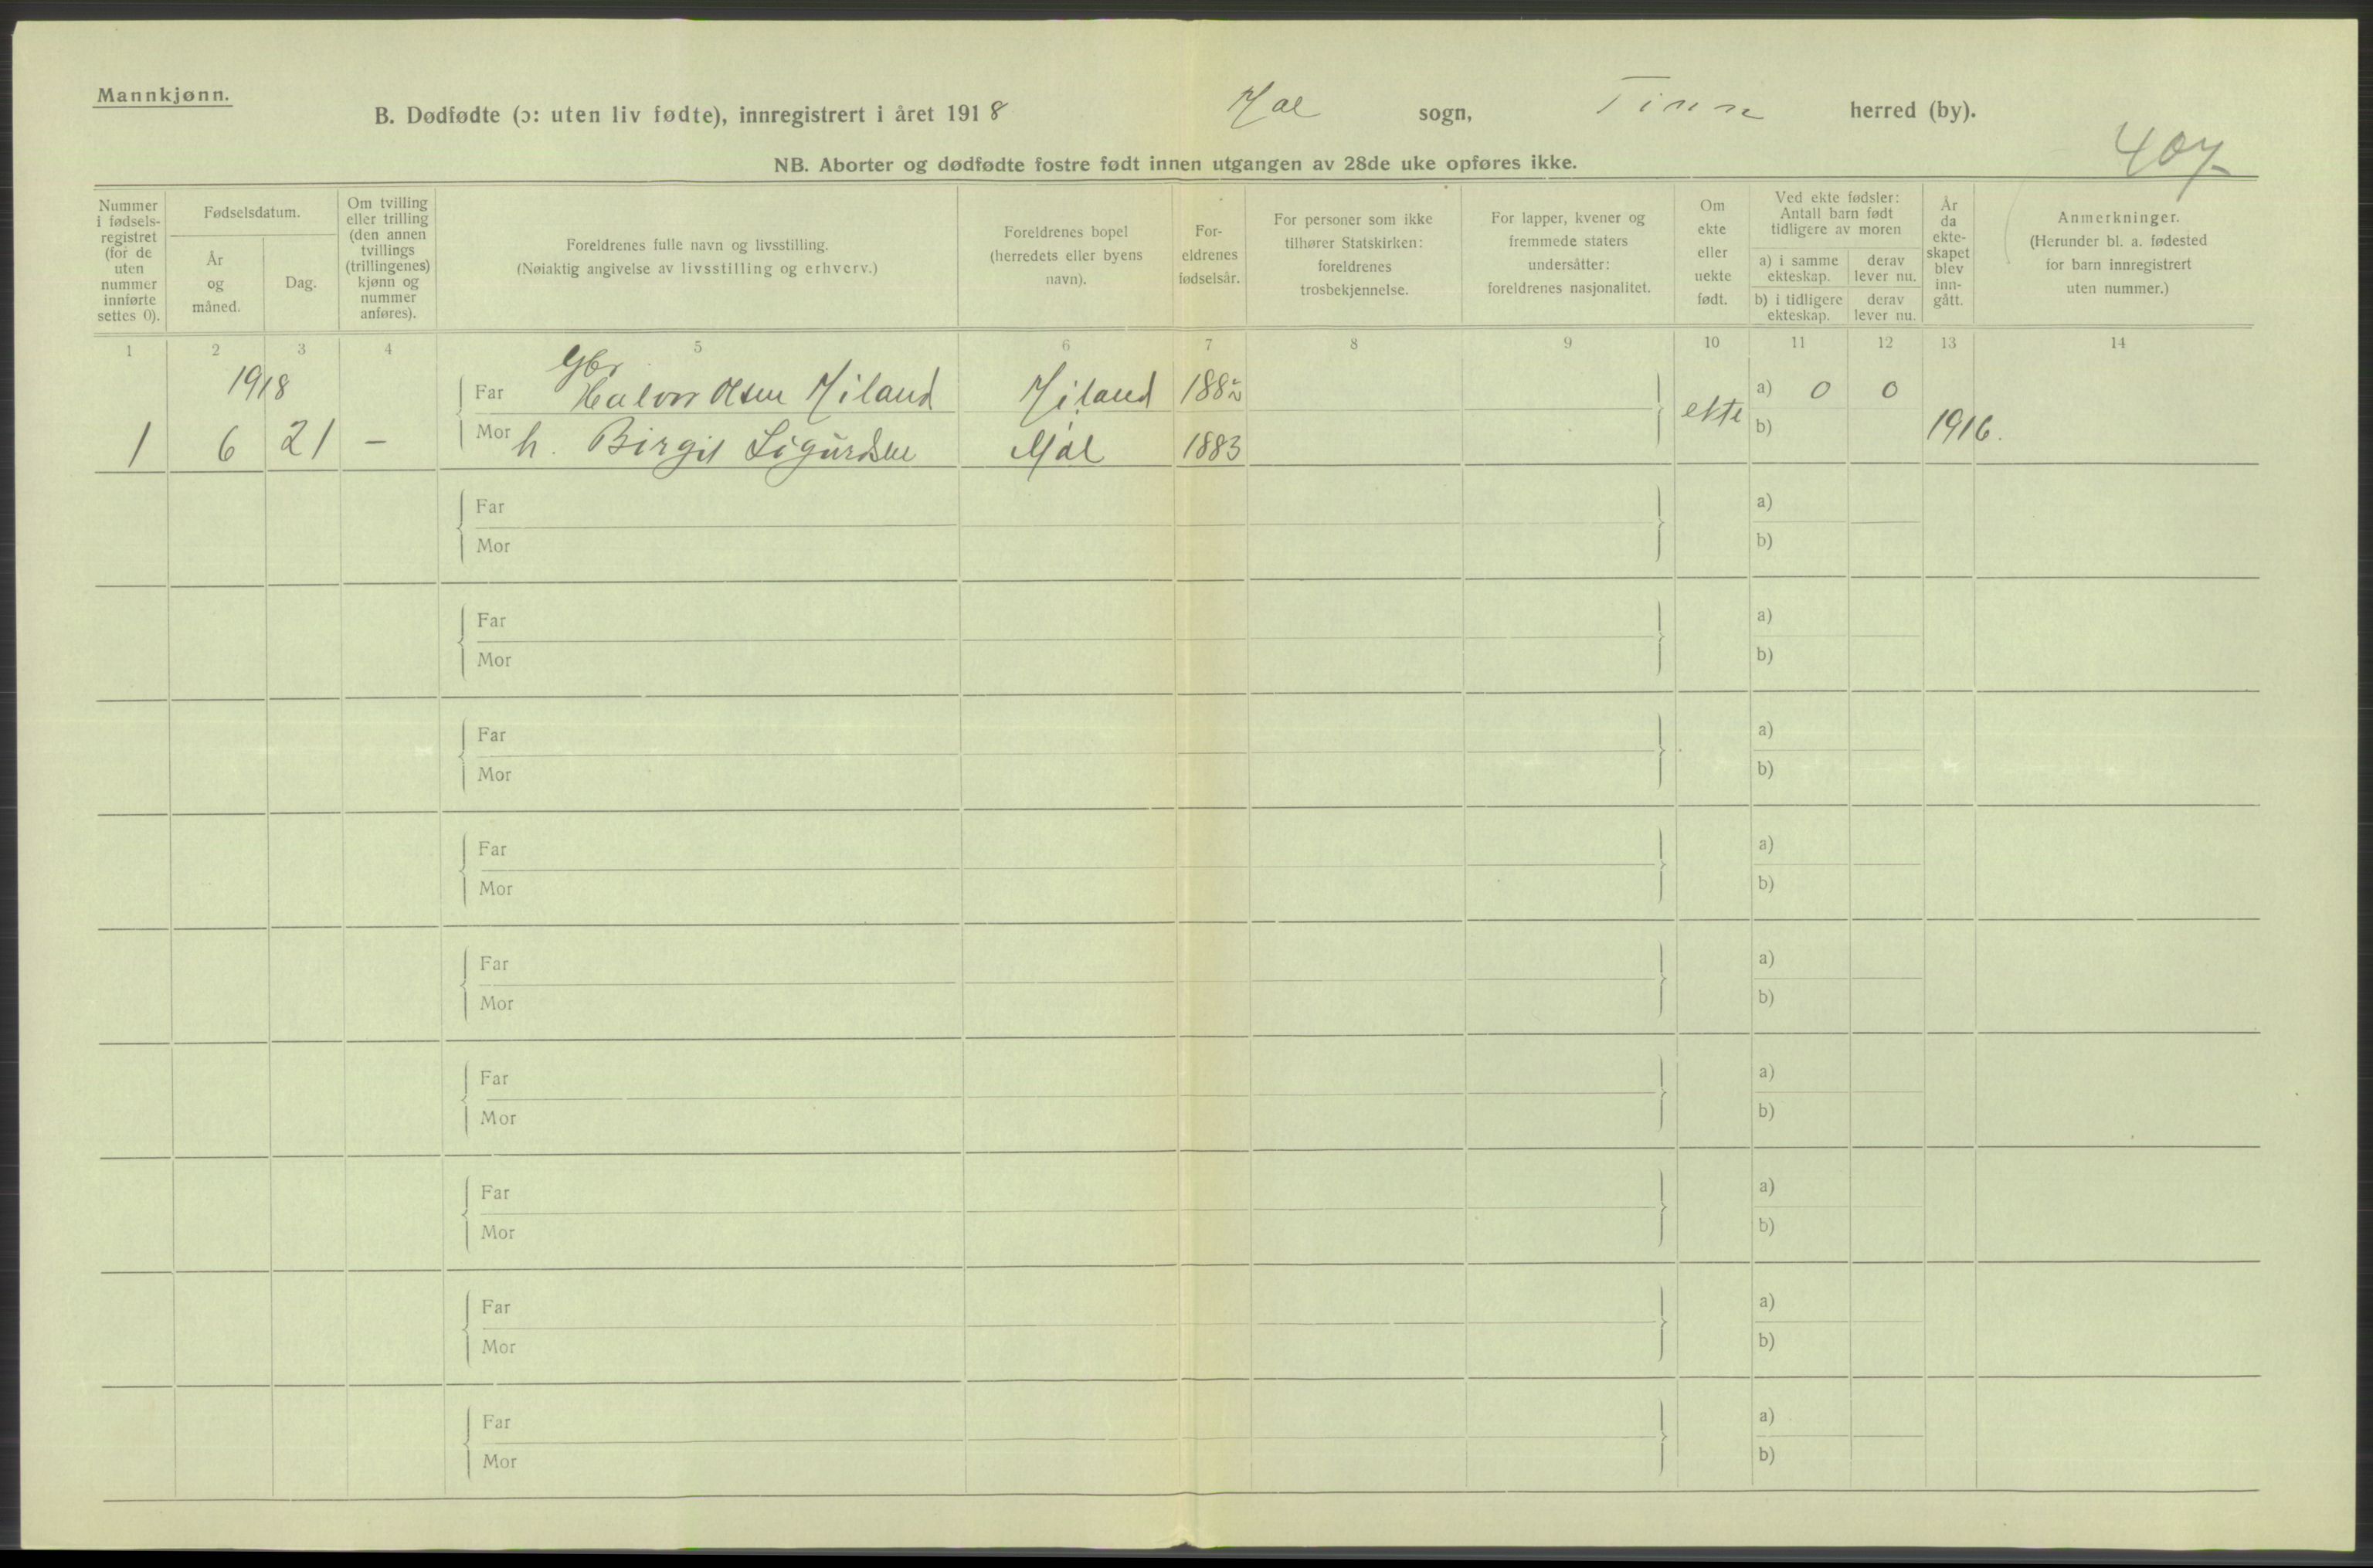 Mannkjønn.
B. Dødfødte (ɔ: uten liv fødte), innregistrert i året 1918 Mæl sogn, Tinn herred (by).
407
NB. Aborter og dødfødte fostre født innen utgangen av 28de uke opføres ikke.
Nummer i fødsels-registret (for de uten nummer innførte settes 0).
Fødselsdatum.
År og måned.
Dag.
Om tvilling eller trilling (den annen tvillings (trillingenes) kjønn og nummer anføres).
Foreldrenes fulle navn og livsstilling.
(Nøiaktig angivelse av livsstilling og erhverv.)
Foreldrenes bopel (herredets eller byens navn).
For-eldrenes fødselsår.
For personer som ikke tilhører Statskirken: foreldrenes trosbekjennelse.
For lapper, kvener og fremmede staters undersåtter: foreldrenes nasjonalitet.
Om ekte eller uekte født.
Ved ekte fødsler: Antall barn født tidligere av moren
a) i samme ekteskap.
derav lever nu.
b) i tidligere ekteskap.
derav lever nu.
År da ekte-skapet blev inn-gått.
Anmerkninger.
(Herunder bl. a. fødested for barn innregistrert uten nummer.)
1 2 3 4 5 6 7 8 9 10 11 12 13 14
1918
Gbr
Far Halvor Olsen Miland Miland 1882 ekte a) 0 0
1 6 21 - Mor h. Birgit Sigurdsen Mæl 1883 b) 1916.
Far a)
Mor b)
Far a)
Mor b)
Far a)
Mor b)
Far a)
Mor b)
Far a)
Mor b)
Far a)
Mor b)
Far a)
Mor b)
Far a)
Mor b)
Far a)
Mor b)